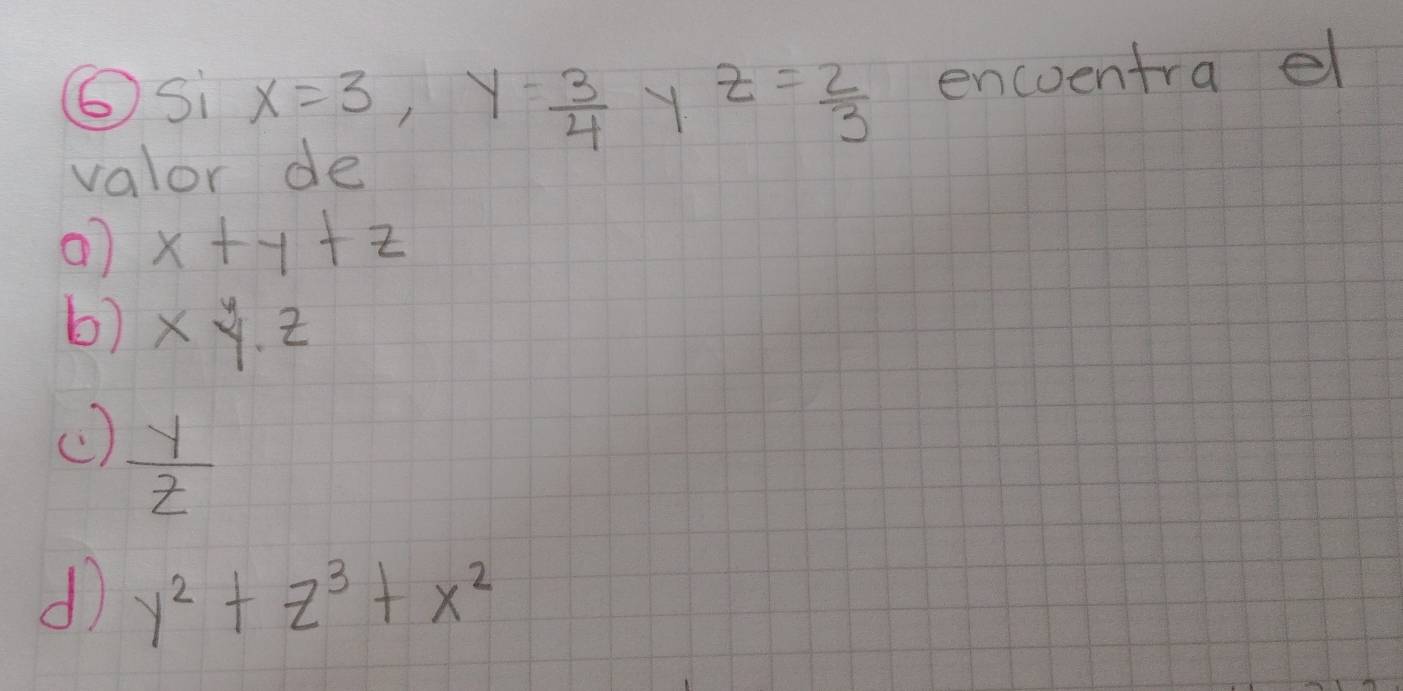 6 Si x = 3, y = 3/4 y z = 2/3 encuentra el
valor de
a) x + y + z
b) x y . z
c) y/z
d) y² + z³ + x²